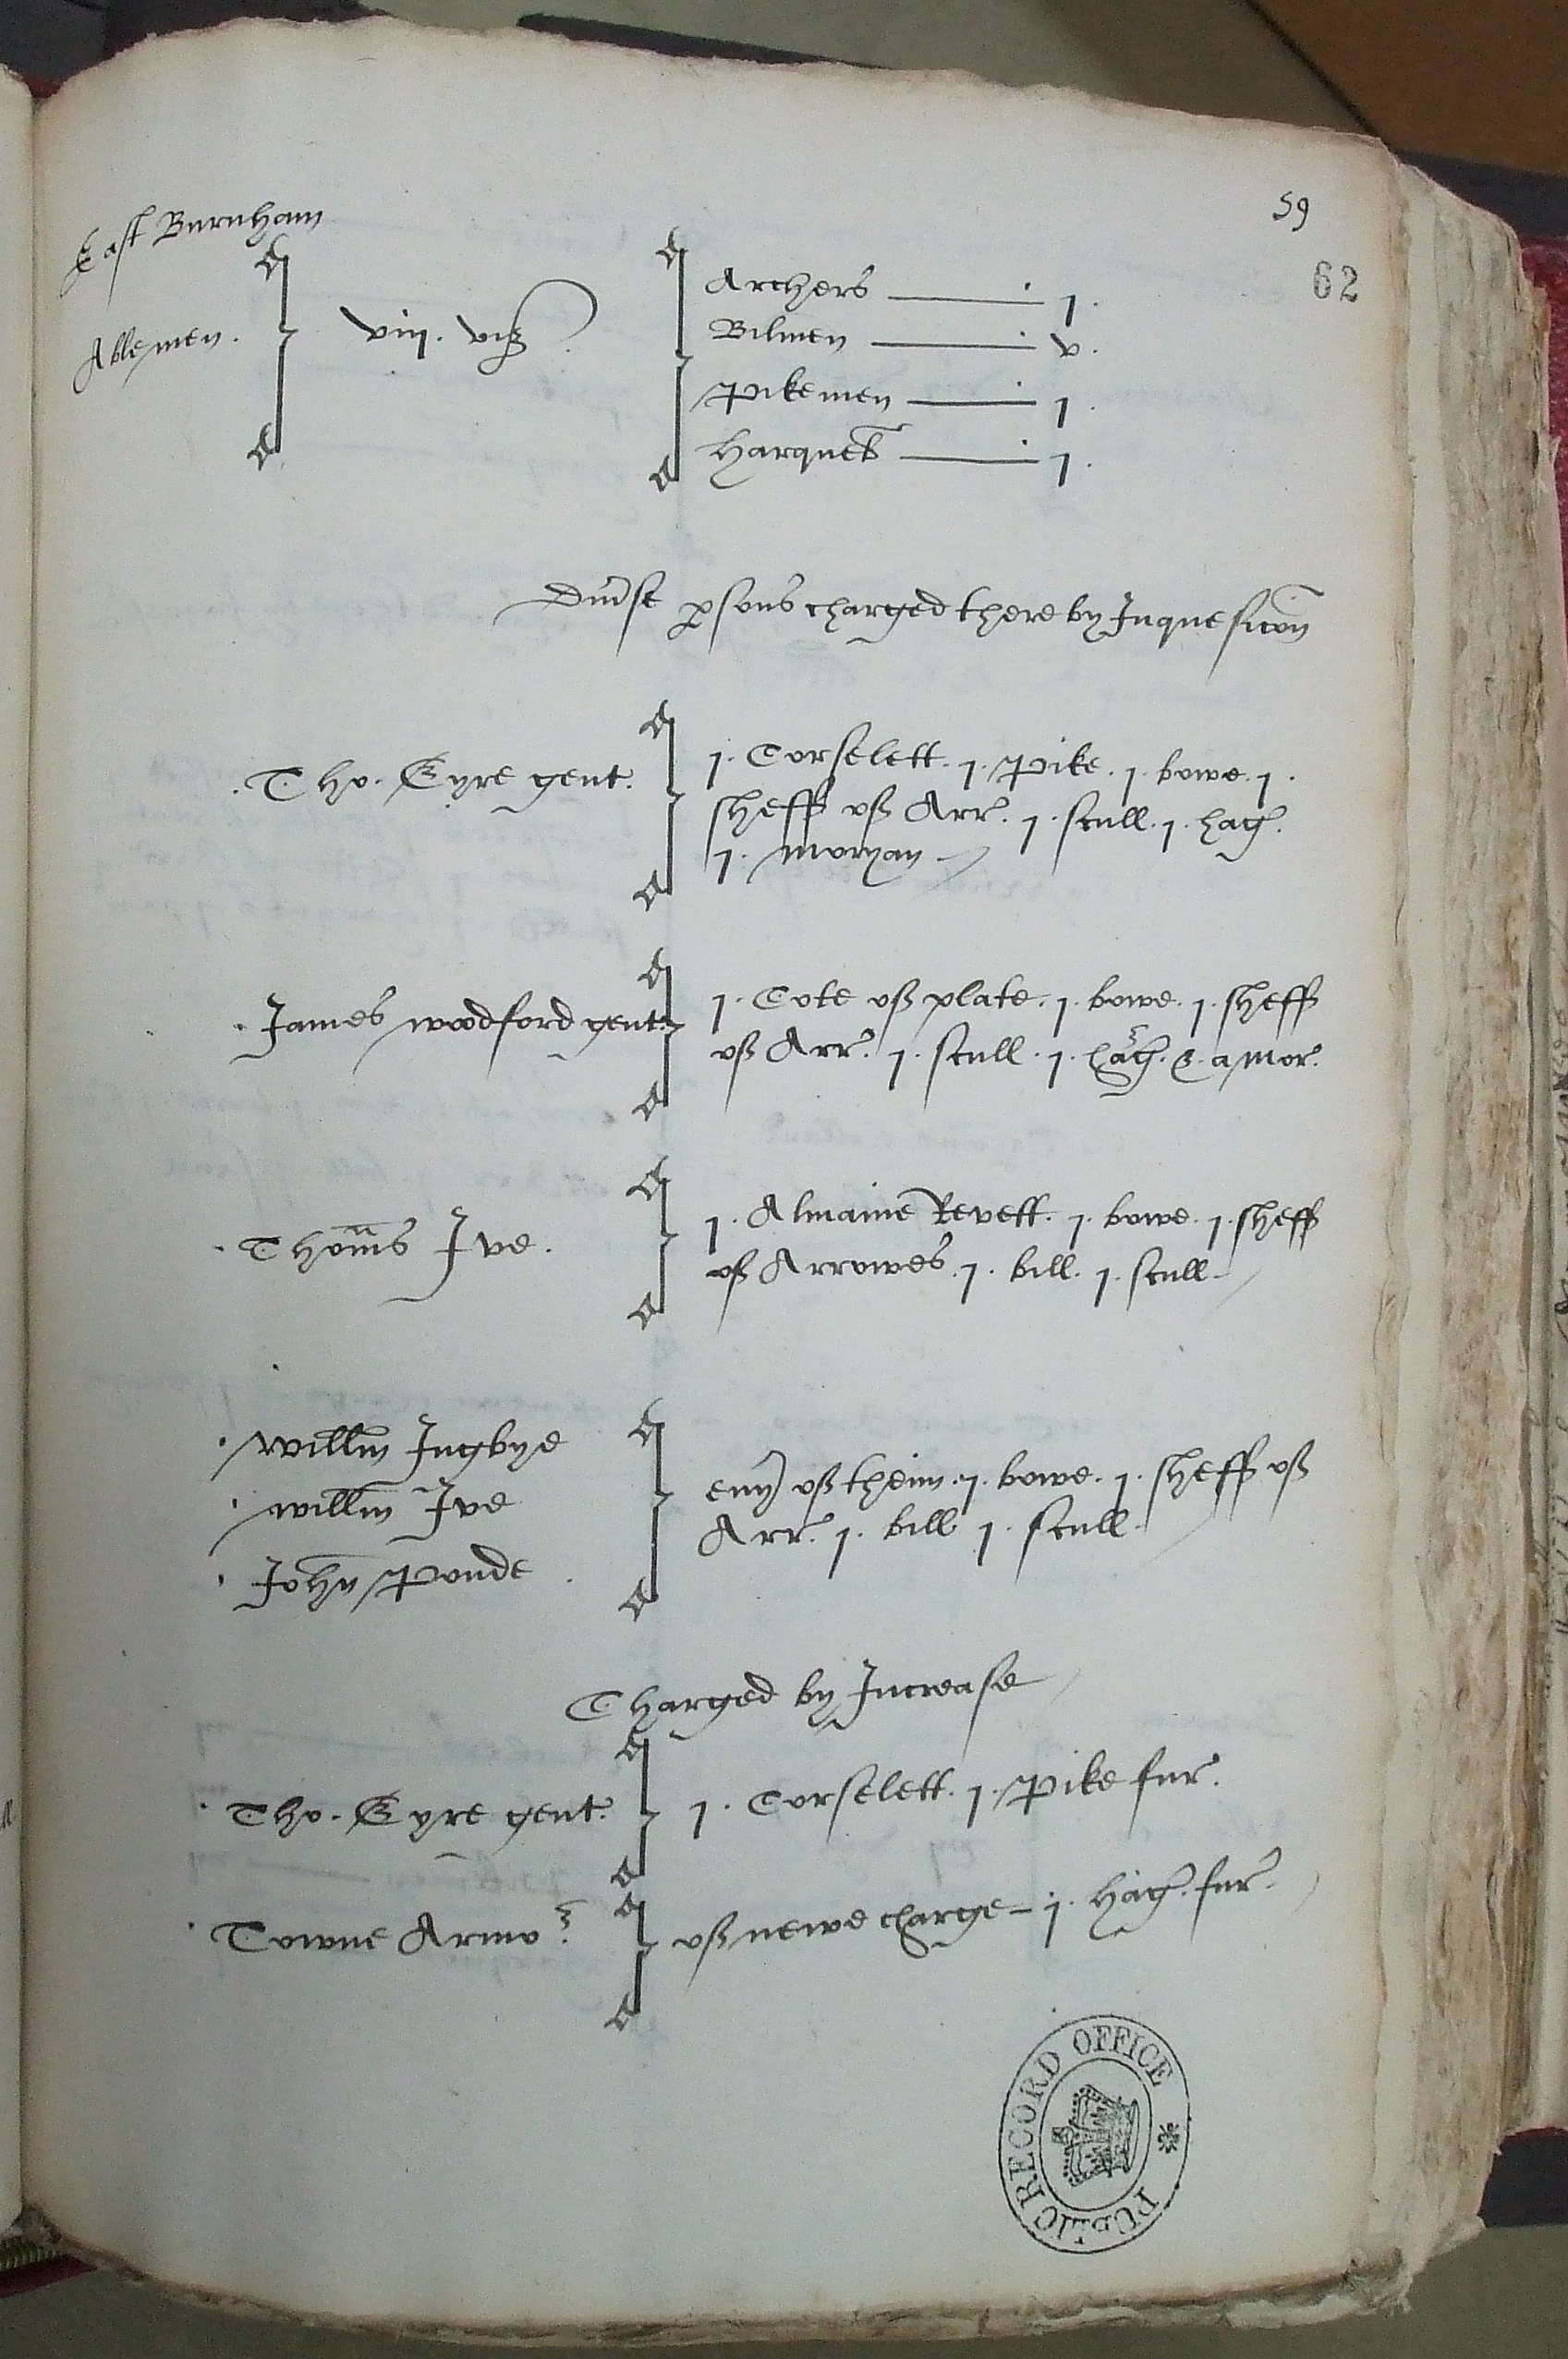 59
62
East Burnham
Ablemen. viij. vizt.
Archers — j.
Bilmen — v.
Pikemen — j.
Harquebt — j.
Diu'se p'sons charged there by Inquesicon
Tho. Eyre gent. j. Corselett. j. Pike. j. bowe. j.
sheff of Arr. j. scull. j. haq.
j. moryan
James woodford gent. j. Cote of plate. j. bowe. j. sheff
of Arr. j. scull. j. haq. & a mor.
Thoms Ive. j. Almaine Revett. j. bowe. j. sheff
of Arrowes. j. bill. j. scull
Willm Ingbye
willm Ive
John Ponde
eu'y of theim. j. bowe. j. sheff of
Arr. j. bill j. scull.
Charged by Increase
Tho. Eyre gent. j. Corselett. j. Pike fur.
Towne Armor. of newe charge – j. Haq. fur.
PUBLIC RECORD OFFICE